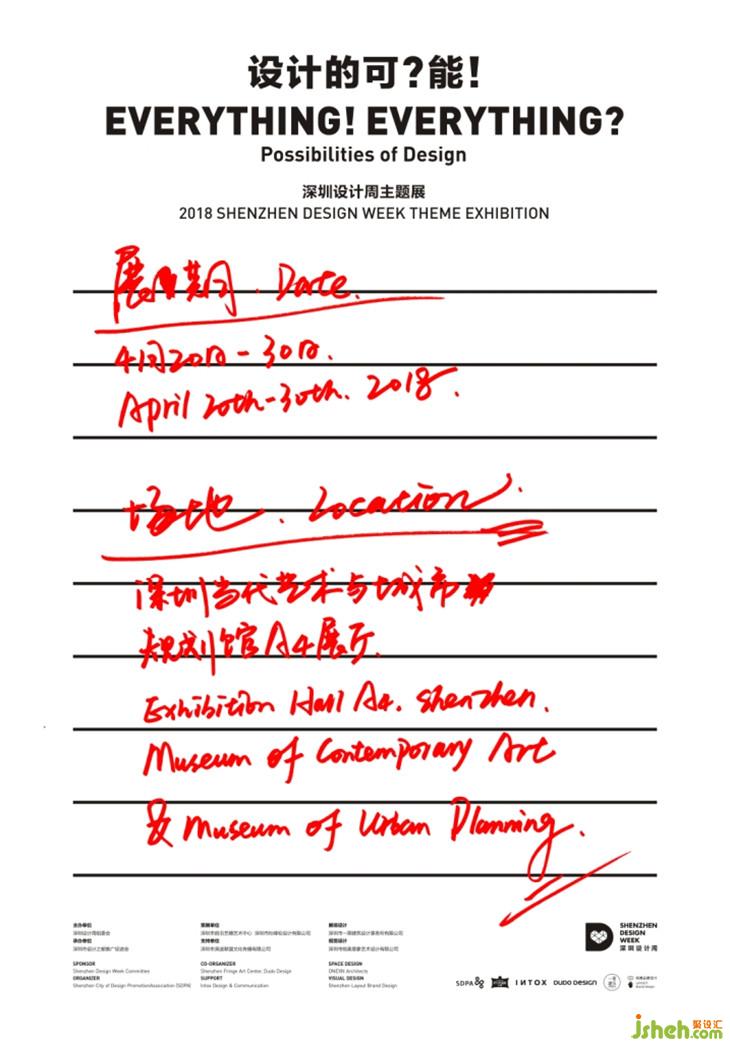 设计的可?能!
EVERYTHING! EVERYTHING?
Possibilities of Design
深圳设计周主题展
2018 SHENZHEN DESIGN WEEK THEME EXHIBITION
展期. Date.
4月20日-30日.
April 20th-30th. 2018.
场地. Location.
深圳当代艺术与城市
规划馆A4展厅.
Exhibition Hall A4. Shenzhen.
Museum of Contemporary Art
& Museum of Urban Planning.
主办单位
深圳设计周组委会
承办单位
深圳市设计之都推广促进会
SPONSOR
Shenzhen Design Week Committee
ORGANIZER
Shenzhen City of Design PromotionAssociation (SDPA)
策展单位
支持单位
CO-ORGANIZER
Shenzhen Fringe Art Center, Dudo Design
SUPPORT
Intox Design & Communication
展场设计
视觉设计
SPACE DESIGN
ONEIN Architects
VISUAL DESIGN
Shenzhen Layout Brand Design
SHENZHEN
DESIGN
WEEK
深圳设计周
SDPA
INTOX
DUDO DESIGN
jsheh.com
聚设汇